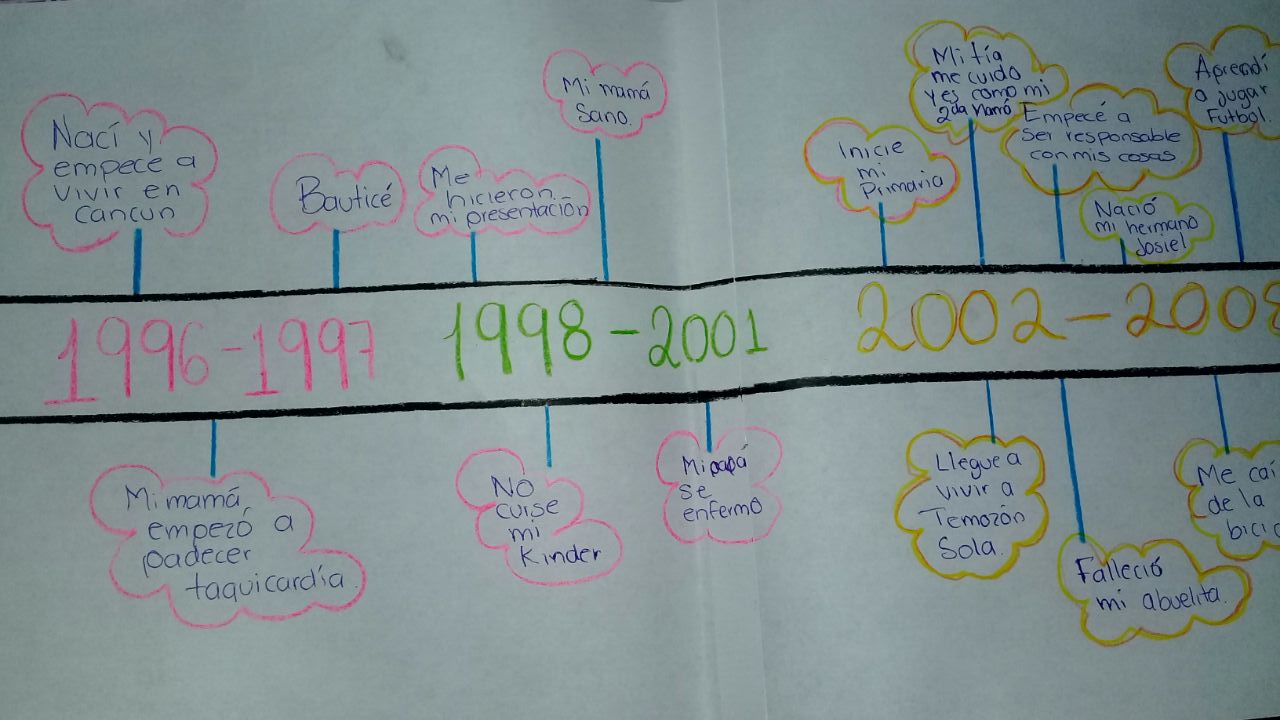 Nací y
empece a
vivir en
cancun
Bauticé
Me
hicieron
mi presentación
Mi mamá
Sano.
Inicie
mi
Primaria
Mi tía
me cuido
y es como mi
2da Mamá
Empecé a
ser responsable
con mis cosas
Nació
mi hermano
Josiel
Aprendí
a jugar
Futbol.
1996-1997
1998-2001
2002-2008
Mi mamá
empezó a
padecer
taquicardía.
NO
curse
mi
Kinder
Mi papá
se
enfermó
Llegue a
vivir a
Temozón
Sola.
Falleció
mi abuelita.
Me caí
de la
bicic